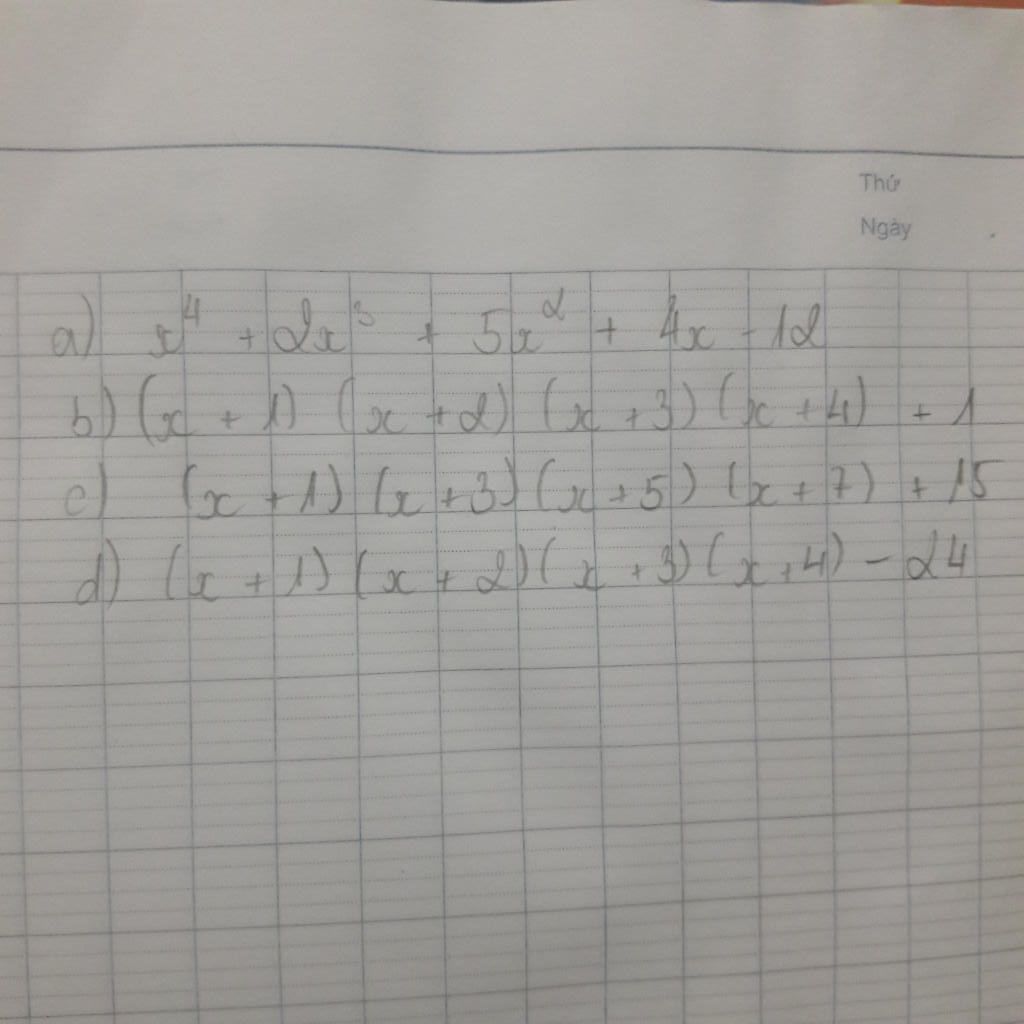 Thứ
Ngày
a) x⁴ + 2x³ + 5x² + 4x - 12
b) (x + 1) (x + 2) (x + 3) (x + 4) + 1
c) (x + 1) (x + 3) (x + 5) (x + 7) + 15
d) (x + 1) (x + 2) (x + 3) (x + 4) - 24